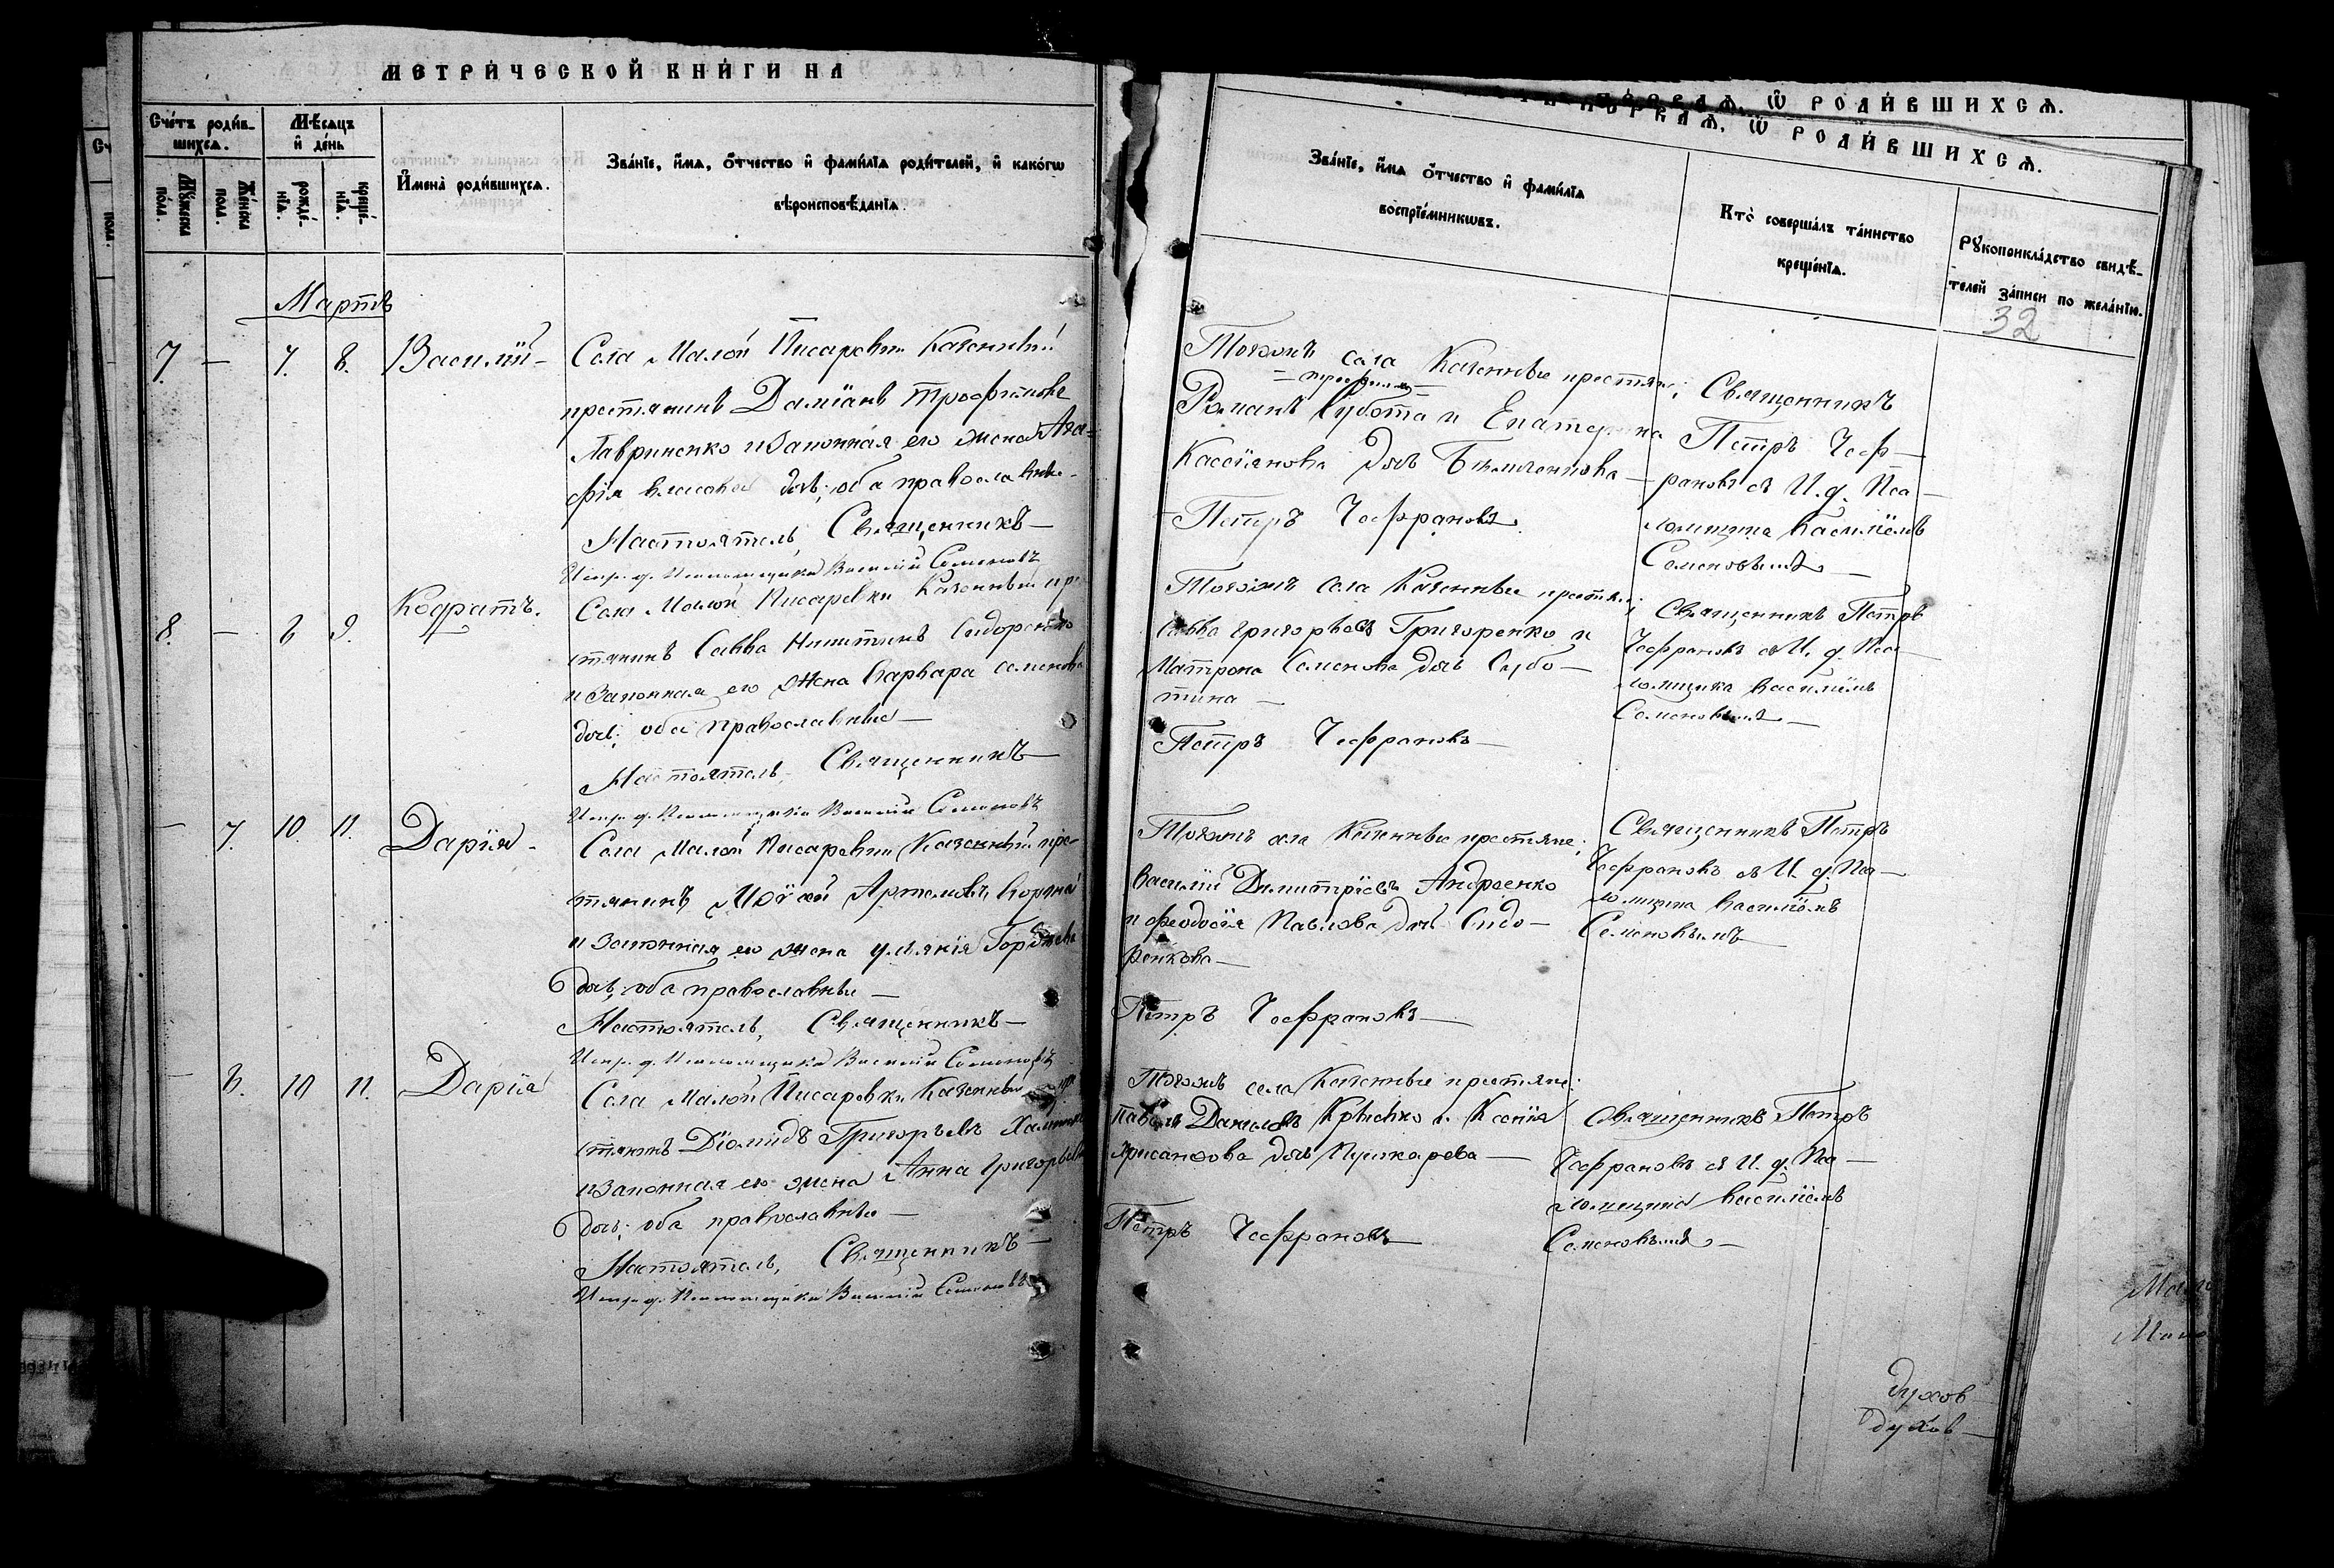 МЕТРИ́ЧЕСКОЙ КНИ́ГИ НА
Сче́тъ роди́в-
шихсѧ.
Мѣ́сѧцъ
и҆ де́нь
Мꙋ́жеска
по́ла.
Же́нска
пола.
рожде́-
нїѧ.
креще́-
нїѧ.
И҆мена̀ роди́вшихсѧ.
Зва́нїе, и҆́мѧ, ѻ҆́тчество и҆ фами́лїѧ роди́телей, и҆ како́гѡ
вѣроисповѣ́данїѧ.
Мартъ
7. — 7. 8. Василій —
Села Малой Писаревки Казенный
крестьянинъ Даміанъ Трофимовъ
Лавриненко и законная его жена Ага-
фія дочь; оба православные
Настоятель, Священникъ —
Испр. д. Псаломщика Василій Семеновъ
8. — 8 9. Кодратъ.
Села Малой Писаревки Казенный кре
стьянинъ Савва Никитинъ Сидоренко
и законная его жена Варвара Семенова
дочь; оба православные —
Настоятель, Священникъ —
Испр. д. Псаломщика Василій Семеновъ
— 7. 10. 11. Дарія —
Села Малой Писаревки Казенный кре-
стьянинъ Артемовъ
и законная его жена Гордѣева
дочь; оба православные —
Настоятель, Священникъ —
Испр. д. Псаломщика Василій Семеновъ
— 8. 10 11. Дарія
Села Малой Писаревки Казенный кре
стьянинъ Діомидъ Григорьевъ
и законная его жена Анна Григорьева
дочь; оба православные —
Настоятель, Священникъ —
Испр. д. Псаломщика Василій Семеновъ
ПЕ́РВАѦ, Ѡ҆ РОДИ́ВШИХСѦ.
ПЕ́РВАѦ, Ѡ҆ РОДИ́ВШИХСѦ.
Зва́нїе, и҆́мѧ ѻ҆́тчество и҆ фами́лїѧ
воспрїе́мникѡвъ.
Кто̀ соверша́лъ та́инство
креще́нїѧ.
Рꙋкоприкла́дство свидѣ́-
телей за́писи по жела́нїю.
32
Тогожъ села Казенные крестьяне;
Романъ Субота и Екатерина
Кассіянова дочь —
Петръ Чефрановъ
Священникъ
Петръ Чеф—
рановъ съ И. д. Пса—
ломщика Василіемъ
Семеновымъ —
Тогожъ села Казенные крестьяне;
Савва Григорьевъ Григоренко и
Матрона Семенова дочь Субо—
тина —
Петръ Чефрановъ —
Священникъ Петръ
Чефрановъ съ И. д. Пса—
ломщика Василіемъ
Семеновымъ —
Тогожъ села Казенные крестьяне;
Василій Димитріевъ Андреенко
и Феодосія Павлова дочь Сидо—
ренкова —
Петръ Чефрановъ —
Священникъ Петръ
Чефрановъ съ И. д. Пса—
ломщика Василіемъ
Семеновымъ —
Тогожъ села Казенные крестьяне:
Павелъ Даниловъ и Ксенія
дочь Пушкарева —
Петръ Чефрановъ —
Священникъ Петръ
Чефрановъ съ И. д. Пса—
ломщика Василіемъ
Семеновымъ —
духов
духов—